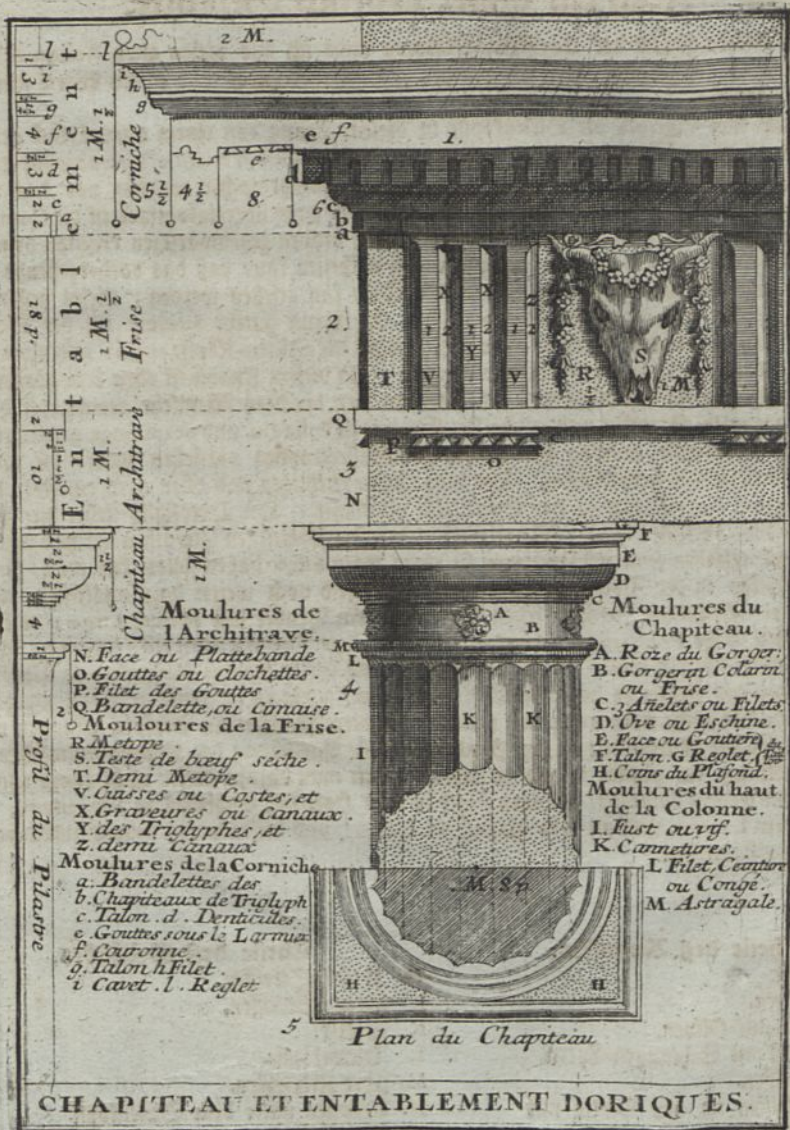 2 M.
Entablement
Corniche
1 M. ½
5 ½
4 ½
8
6
1.
Frise
1 M. ½
18 p.
2
X
X
Z
1 2
1 2
1 2
Y
T
V
V
R
S
1 M
Architrave
1 M.
10
Q
P
O
3
N
Chapiteau
1 M.
4
F
E
D
C
A
B
M
L
4
K
K
I
Moulures de
l'Architrave.
N. Face ou Plattebande
O. Gouttes ou clochettes.
P. Filet des Gouttes
Q. Bandelette, ou Cimaise.
Mouloures de la Frise.
R. Metope.
S. Teste de bœuf séche.
T. Demi Metope.
V. Cuisses ou Costes, et
X. Graveures ou Canaux.
Y. des Triglyphes, et
Z. demi Canaux
Moulures de la Corniche
a. Bandelettes des
b. Chapiteaux de Triglyph
c. Talon. d. Denticules.
e. Gouttes sous le Larmier
f. Couronne.
g. Talon h Filet.
i Cavet. l. Reglet
Profil du Pilastre
Moulures du
Chapiteau.
A. Roze du Gorger:
B. Gorgerin Colarin
ou Frise.
C. 3 Añelets ou Filets
D. Ove ou Eschine.
E. Face ou Goutiere
F. Talon. G Reglet.
H. Coins du Plafond.
Moulures du haut
de la Colonne.
I. Fust ou vif.
K. Cannetures.
L Filet, Ceinture
ou Congé.
M. Astragale.
H
H
5
Plan du Chapiteau
CHAPITEAU ET ENTABLEMENT DORIQUES.